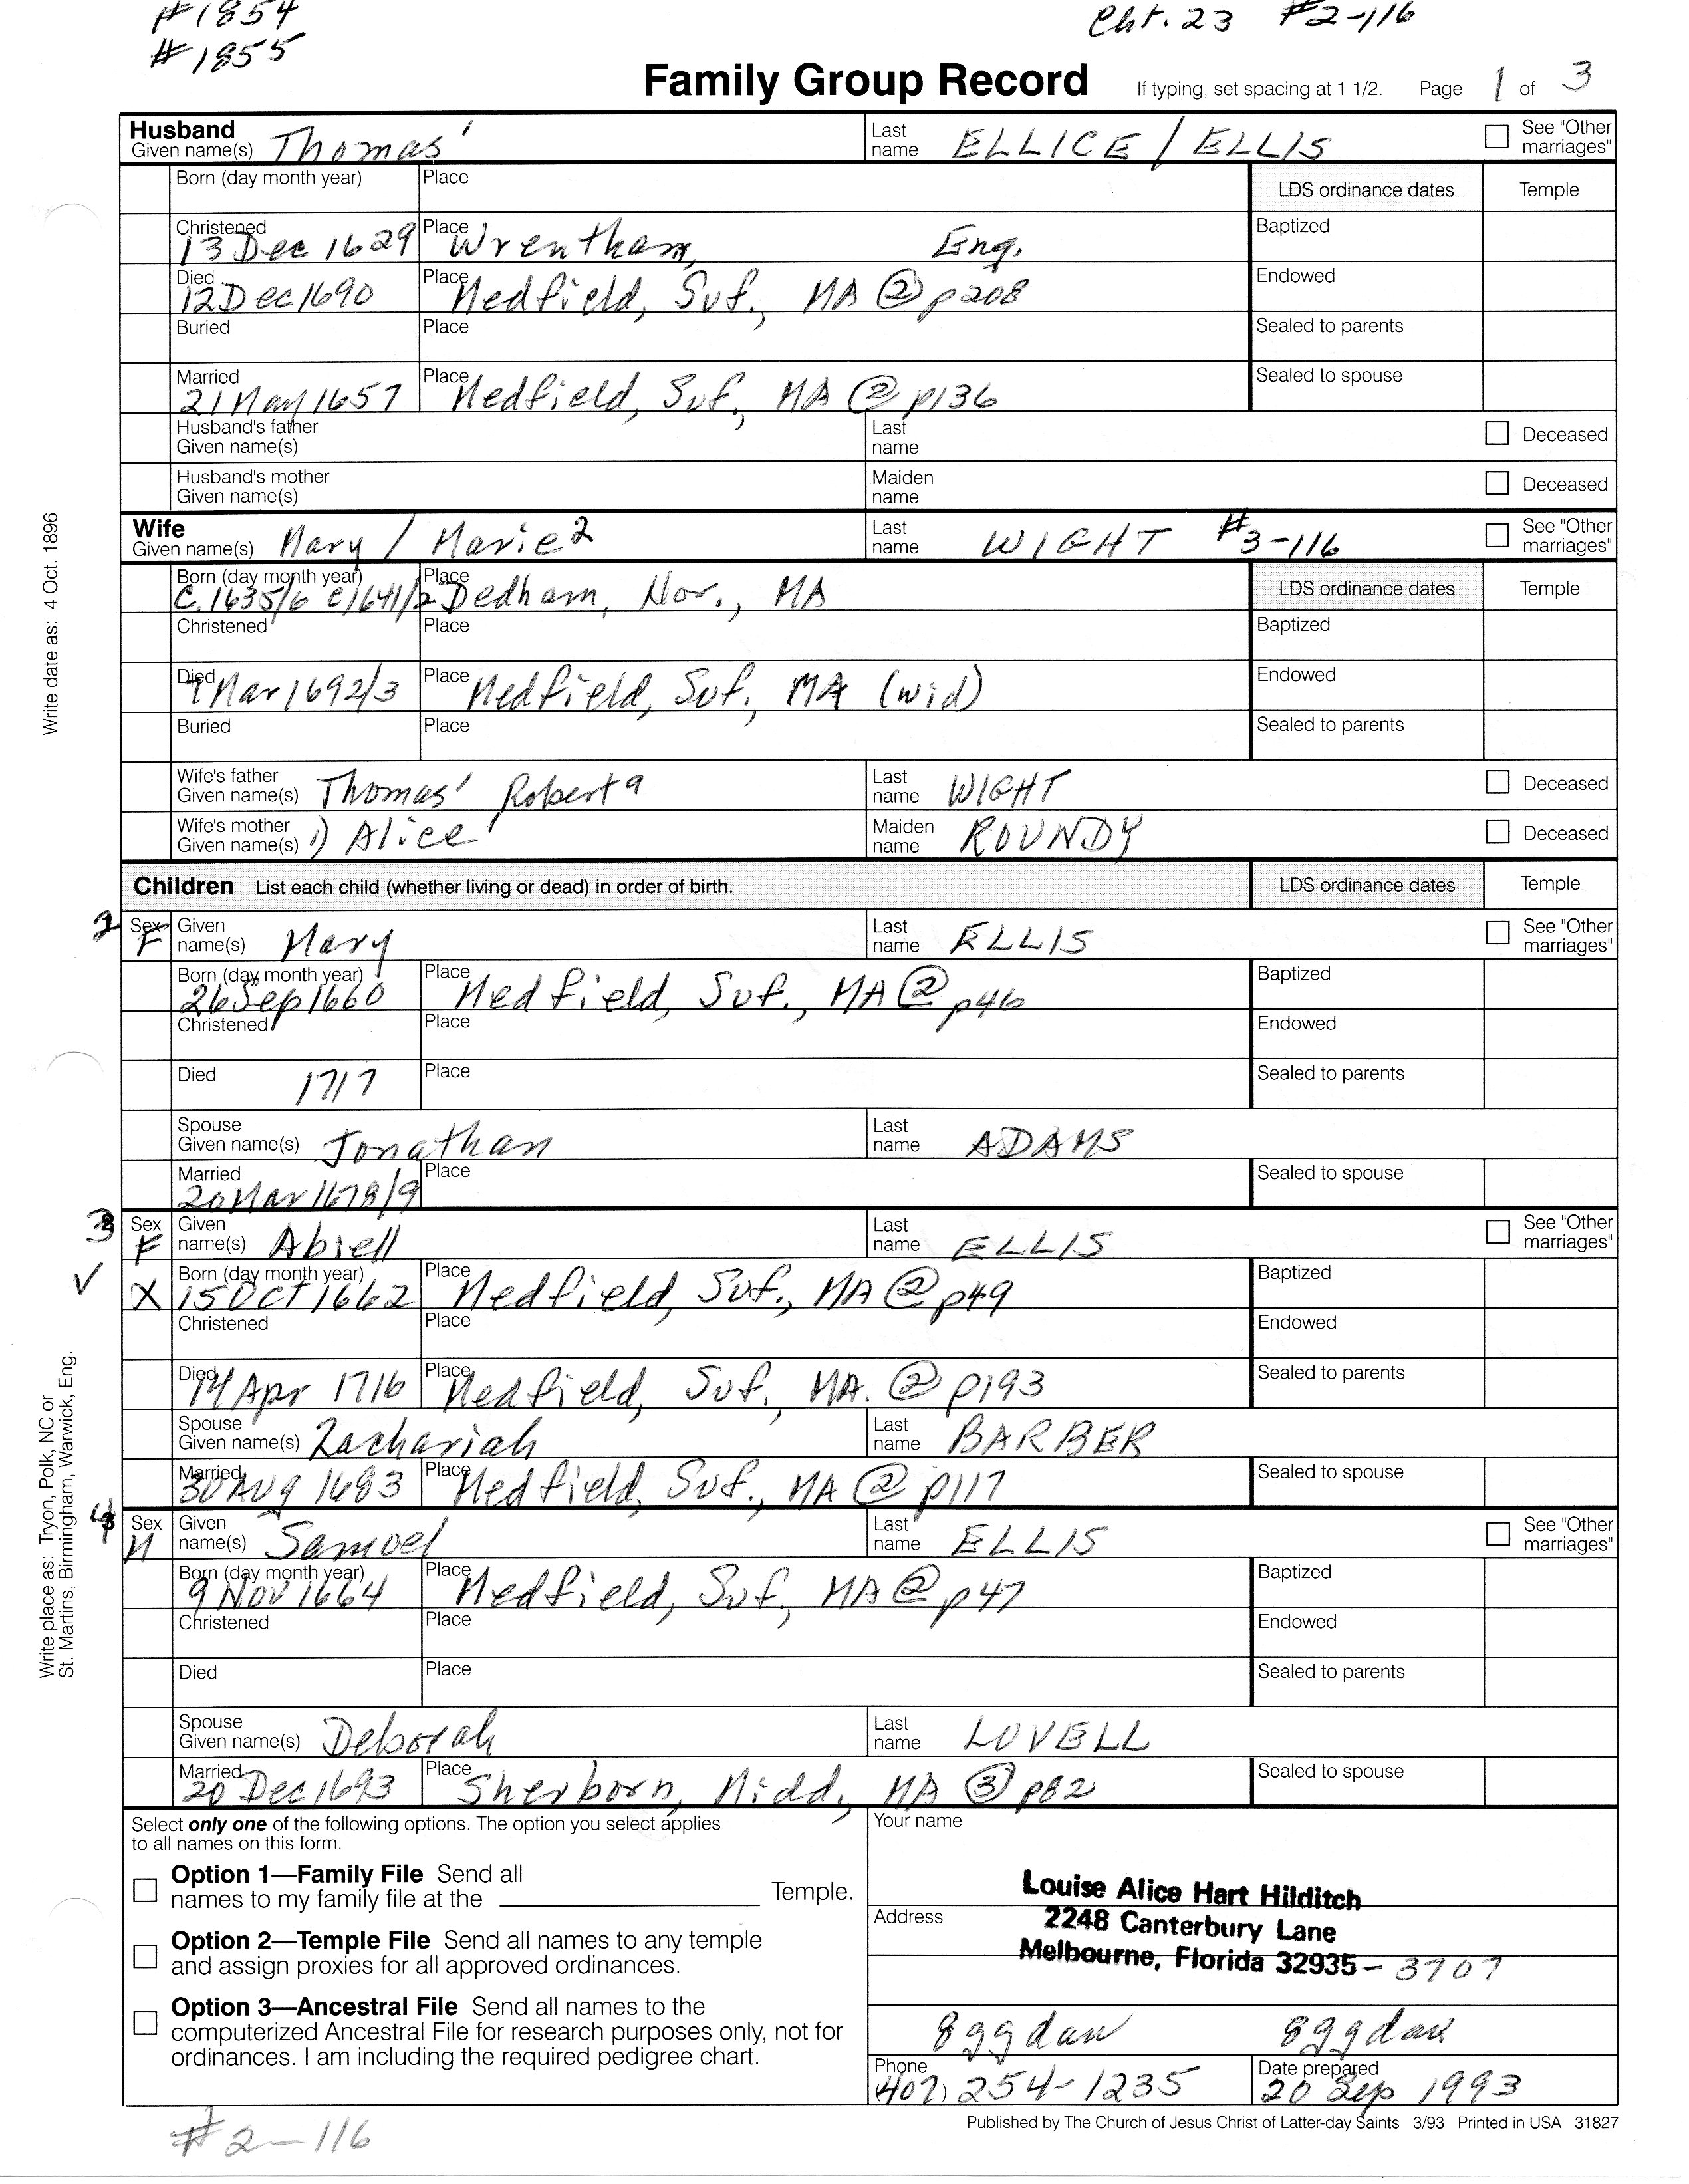 #1854
#1855
Cht. 23 #2-116
Family Group Record If typing, set spacing at 1 1/2. Page 1 of 3
Husband
Given name(s) Thomas' Last name ELLICE / ELLIS See "Other marriages"
Born (day month year) Place LDS ordinance dates Temple
Christened 13 Dec 1629 Place Wrentham, Eng. Baptized
Died 12 Dec 1690 Place Medfield, Suf., MA @ p208 Endowed
Buried Place Sealed to parents
Married 21 May 1657 Place Medfield, Suf., MA ② p136 Sealed to spouse
Husband's father Given name(s) Last name Deceased
Husband's mother Given name(s) Maiden name Deceased
Wife
Given name(s) Mary / Marie² Last name WIGHT #3-116 See "Other marriages"
Born (day month year) C. 1635/6 C1641/2 Place Dedham, Nor., MA LDS ordinance dates Temple
Christened Place Baptized
Died 9 Mar 1692/3 Place Medfield, Suf., MA (wid) Endowed
Buried Place Sealed to parents
Wife's father Given name(s) Thomas' Robert a Last name WIGHT Deceased
Wife's mother Given name(s) 1) Alice Maiden name ROUNDY Deceased
Children List each child (whether living or dead) in order of birth. LDS ordinance dates Temple
2 Sex F Given name(s) Mary Last name ELLIS See "Other marriages"
Born (day month year) 26 Sep 1660 Place Medfield, Suf., MA ② p46 Baptized
Christened Place Endowed
Died 1717 Place Sealed to parents
Spouse Given name(s) Jonathan Last name ADAMS
Married 20 Mar 1678/9 Place Sealed to spouse
3 Sex F Given name(s) Abiell Last name ELLIS See "Other marriages"
✓ X Born (day month year) 15 OCT 1662 Place Medfield, Suf., MA ② p49 Baptized
Christened Place Endowed
Died 14 Apr 1716 Place Medfield, Suf., MA. ② p193 Sealed to parents
Spouse Given name(s) Zachariah Last name BARBER
Married 30 Aug 1683 Place Medfield, Suf., MA ② p117 Sealed to spouse
4 Sex M Given name(s) Samuel Last name ELLIS See "Other marriages"
Born (day month year) 9 Nov 1664 Place Medfield, Suf., MA ② p47 Baptized
Christened Place Endowed
Died Place Sealed to parents
Spouse Given name(s) Deborah Last name LOVELL
Married 20 Dec 1693 Place Sherborn, Midd., MA ③ p82 Sealed to spouse
Select only one of the following options. The option you select applies
to all names on this form.
Option 1—Family File Send all
names to my family file at the Temple.
Option 2—Temple File Send all names to any temple
and assign proxies for all approved ordinances.
Option 3—Ancestral File Send all names to the
computerized Ancestral File for research purposes only, not for
ordinances. I am including the required pedigree chart.
Your name
Louise Alice Hart Hilditch
Address 2248 Canterbury Lane
Melbourne, Florida 32935 - 3707
8ggdau 8ggdau
Phone (407) 254-1235 Date prepared 20 Sep 1993
Published by The Church of Jesus Christ of Latter-day Saints 3/93 Printed in USA 31827
#2-116
Write date as: 4 Oct. 1896
Write place as: Tryon, Polk, NC or
St. Martins, Birmingham, Warwick, Eng.